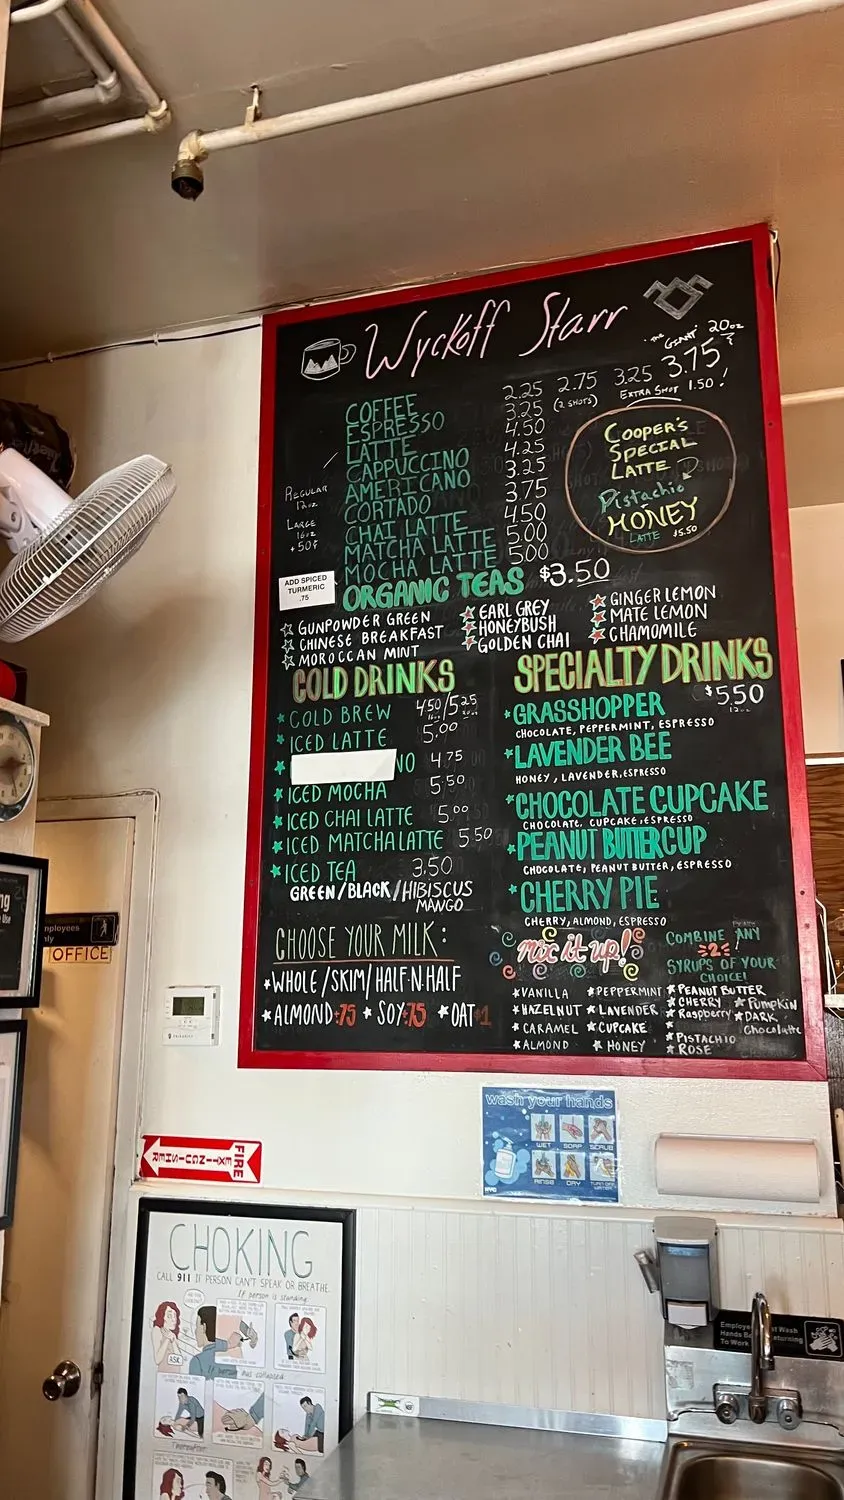 Wyckoff Starr
"THE GIANT" 20oz
COFFEE 2.25 2.75 3.25 3.75
ESPRESSO 3.25 (2 SHOTS) EXTRA SHOT 1.50!
LATTE 4.50
CAPPUCCINO 4.25
AMERICANO 3.25
CORTADO 3.75
CHAI LATTE 4.50
MATCHA LATTE 5.00
MOCHA LATTE 5.00
REGULAR
12oz
LARGE
16oz
+50¢
COOPER'S
SPECIAL
LATTE
Pistachio
HONEY
LATTE $5.50
ADD SPICED
TURMERIC
.75
ORGANIC TEAS $3.50
GUNPOWDER GREEN
CHINESE BREAKFAST
MOROCCAN MINT
EARL GREY
HONEYBUSH
GOLDEN CHAI
GINGER LEMON
MATE LEMON
CHAMOMILE
COLD DRINKS
COLD BREW 4.50/5.25
ICED LATTE 5.00
NO 4.75
ICED MOCHA 5.50
ICED CHAI LATTE 5.00
ICED MATCHA LATTE 5.50
ICED TEA 3.50
GREEN/BLACK/HIBISCUS
MANGO
CHOOSE YOUR MILK:
WHOLE/SKIM/HALF-N-HALF
ALMOND .75 SOY .75 OAT 1
SPECIALTY DRINKS
$5.50
12oz
GRASSHOPPER
CHOCOLATE, PEPPERMINT, ESPRESSO
LAVENDER BEE
HONEY, LAVENDER, ESPRESSO
CHOCOLATE CUPCAKE
CHOCOLATE, CUPCAKE, ESPRESSO
PEANUT BUTTERCUP
CHOCOLATE, PEANUT BUTTER, ESPRESSO
CHERRY PIE
CHERRY, ALMOND, ESPRESSO
mix it up!
COMBINE ANY
2
SYRUPS OF YOUR
CHOICE!
VANILLA
HAZELNUT
CARAMEL
ALMOND
PEPPERMINT
LAVENDER
CUPCAKE
HONEY
PEANUT BUTTER
CHERRY
Raspberry
PISTACHIO
ROSE
Pumpkin
DARK
Chocolate
Employees
Only
OFFICE
FIRE
EXTINGUISHER
wash your hands
WET SOAP SCRUB
RINSE DRY TURN OFF
WATER
CHOKING
CALL 911 IF PERSON CAN'T SPEAK OR BREATHE.
If person is standing
ASK
If person has collapsed
Thereafter
Employees Must Wash
Hands Before Returning
To Work
NSF